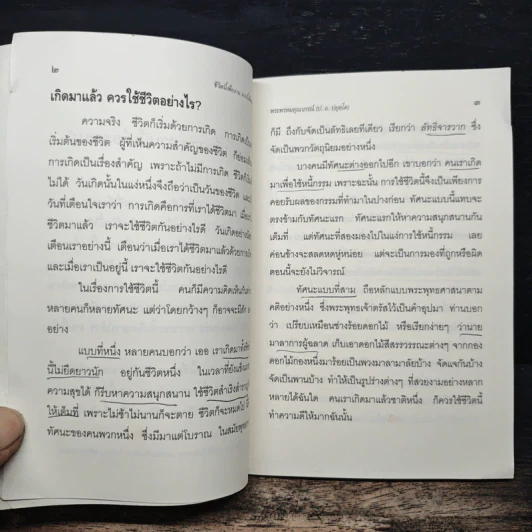 ๒
ชีวิตนี้เพื่องาน
เกิดมาแล้ว ควรใช้ชีวิตอย่างไร?
ความจริง ชีวิตก็เริ่มด้วยการเกิด การเกิดเป็น
เริ่มต้นของชีวิต ผู้ที่เห็นความสำคัญของชีวิต ก็ย่อม
การเกิดเป็นเรื่องสำคัญ เพราะถ้าไม่มีการเกิด ชีวิตก็
ไม่ได้ วันเกิดนั้นในแง่หนึ่งจึงถือว่าเป็นวันของชีวิต และ
วันที่เตือนใจเราว่า การเกิดคือการที่เราได้ชีวิตมา เมื่อ
ชีวิตมาแล้ว เราจะใช้ชีวิตกันอย่างไรดี วันเกิดอย่าง
เตือนเราอย่างนี้ เตือนว่าเมื่อเราได้ชีวิตมาแล้วด้วยการ
และเมื่อเราเป็นอยู่นี้ เราจะใช้ชีวิตกันอย่างไรดี
ในเรื่องการใช้ชีวิตนี้ คนก็มีความคิดเห็นกัน
หลายคนก็หลายทัศนะ แต่ว่าโดยกว้างๆ ก็อาจจะมี
อย่าง
แบบที่หนึ่ง หลายคนบอกว่า เออ เราเกิดมา
นี้ไม่ยืดยาวนัก อยู่กันชีวิตหนึ่ง ในเวลาที่ยัง
ความสุขได้ ก็รีบหาความสนุกสนาน ใช้ชีวิตสำเริงสำราญ
ให้เต็มที่ เพราะไม่ช้าไม่นานก็จะตาย ชีวิตก็จะหมดไป
ทัศนะของคนพวกหนึ่ง ซึ่งมีมาแต่โบราณ ในสมัย
พระพรหมคุณาภรณ์ (ป. อ. ปยุตฺโต)
๓
ก็มี ถึงกับจัดเป็นลัทธิเลยทีเดียว เรียกว่า ลัทธิจารวาก ซึ่ง
จัดเป็นพวกวัตถุนิยมอย่างหนึ่ง
บางคนมีทัศนะต่างออกไปอีก เขาบอกว่า คนเราเกิด
มาเพื่อใช้หนี้กรรม เพราะฉะนั้น การใช้ชีวิตนี้จึงเป็นเพียงการ
คอยรับผลของกรรมที่ทำมาในปางก่อน ทัศนะแบบนี้แทบจะ
ตรงข้ามกับทัศนะแรก ทัศนะแรกให้หาความสนุกสนานกัน
เต็มที่ แต่ทัศนะที่สองมองไปในแง่การใช้หนี้กรรม เลย
ค่อนข้างจะสลดหดหู่หน่อย แต่จะเป็นการมองที่ถูกหรือผิด
ตอนนี้จะยังไม่วิจารณ์
ทัศนะแบบที่สาม ถือหลักแบบพระพุทธศาสนาตาม
คติอย่างหนึ่ง ซึ่งพระพุทธเจ้าตรัสไว้เป็นคำอุปมา ท่านบอก
ว่า เปรียบเหมือนช่างร้อยดอกไม้ หรือเรียกง่ายๆ ว่านาย
มาลาการผู้ฉลาด เก็บเอาดอกไม้สีสรรวรรณะต่างๆ จากกอง
ดอกไม้กองหนึ่งมาร้อยเป็นพวงมาลามาลัยบ้าง จัดแจกันบ้าง
จัดเป็นพานบ้าง ทำให้เป็นรูปร่างต่างๆ ที่สวยงามอย่างหลาก
หลายได้ฉันใด คนเราเกิดมาแล้วชาติหนึ่ง ก็ควรใช้ชีวิตนี้
ทำความดีให้มากฉันนั้น